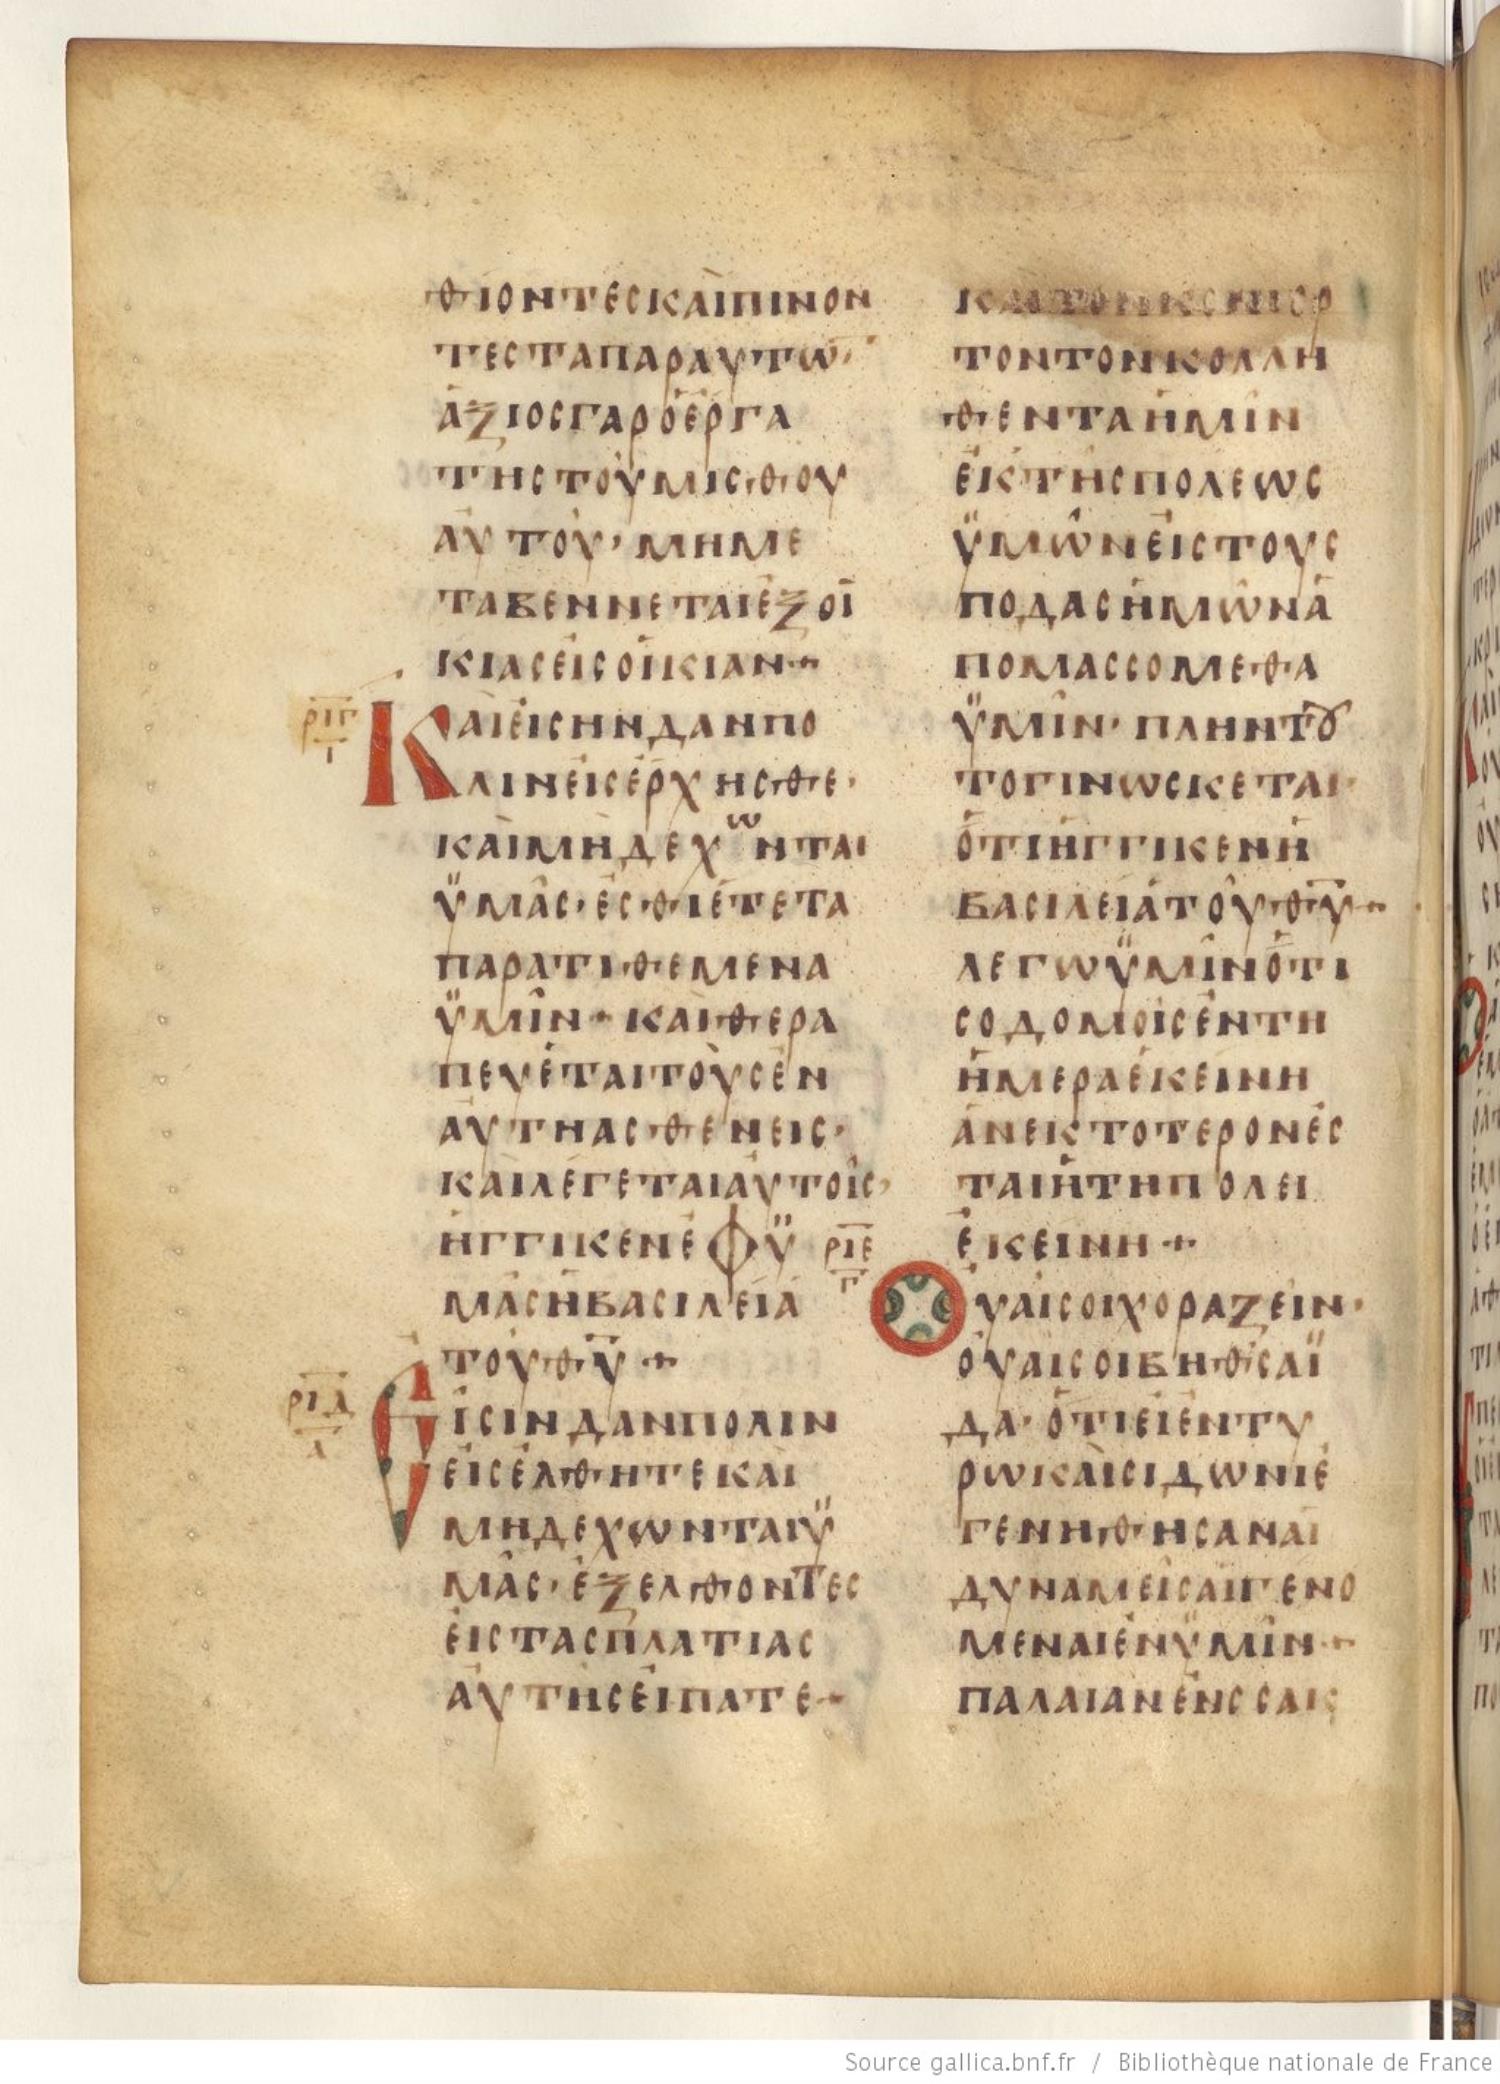 ΘΙΟΝΤΕΣΚΑΙΠΙΝΟΝ
ΤΕΣΤΑΠΑΡΑΥΤΩ·
ΑΞΙΟΣΓΑΡΟΕΡΓΑ
ΤΗΣΤΟΥΜΙΣΘΟΥ
ΑΥΤΟΥ· ΜΗΜΕ
ΤΑΒΕΝΝΕΤΑΙΕΞΟΙ
ΚΙΑΣΕΙΣΟΙΚΙΑΝ
ΡΙΓ
Ι
ΚΑΙΕΙΣΗΝΔΑΝΠΟ
ΛΙΝΕΙΣΕΡΧΗΣΘΕ·
ΚΑΙΜΗΔΕΧΩΝΤΑΙ
ΫΜΑΣ· ΕΣΘΙΕΤΕΤΑ
ΠΑΡΑΤΙΘΕΜΕΝΑ
ΫΜΙΝ· ΚΑΙΘΕΡΑ
ΠΕΥΕΤΑΙΤΟΥΣΕΝ
ΑΥΤΗΑΣΘΕΝΕΙΣ·
ΚΑΙΛΕΓΕΤΑΙΑΥΤΟΙΣ·
ΗΓΓΙΚΕΝΕΦΫ
ΜΑΣΗΒΑΣΙΛΕΙΑ
ΤΟΥΘΥ
ΡΙΔ
ΕΙΣΙΝΔΑΝΠΟΛΙΝ
ΕΙΣΕΛΘΗΤΕΚΑΙ
ΜΗΔΕΧΩΝΤΑΙΫ
ΜΑΣ· ΕΞΕΛΘΟΝΤΕΣ
ΕΙΣΤΑΣΠΛΑΤΙΑΣ
ΑΥΤΗΣΕΙΠΑΤΕ
ΚΑΙΤΟΝΚΟΝΙΟΡ
ΤΟΝΤΟΝΚΟΛΛΗ
ΘΕΝΤΑΗΜΙΝ
ΕΚΤΗΣΠΟΛΕΩΣ
ΫΜΩΝΕΙΣΤΟΥΣ
ΠΟΔΑΣΗΜΩΝΑ
ΠΟΜΑΣΣΟΜΕΘΑ
ΫΜΙΝ· ΠΛΗΝΤȢ
ΤΟΓΙΝΩΣΚΕΤΑΙ·
ΟΤΙΗΓΓΙΚΕΝΗ
ΒΑΣΙΛΕΙΑΤΟΥΘΥ
ΛΕΓΩΫΜΙΝΟΤΙ
ΣΟΔΟΜΟΙΣΕΝΤΗ
ΗΜΕΡΑΕΚΕΙΝΗ
ΑΝΕΚΤΟΤΕΡΟΝΕΣ
ΤΑΙΗΤΗΠΟΛΕΙ
ΕΚΕΙΝΗ
ΡΙΕ
ΟΥΑΙΣΟΙΧΟΡΑΖΕΙΝ·
ΟΥΑΙΣΟΙΒΗΘΣΑΪ
ΔΑ· ΟΤΙΕΙΕΝΤΥ
ΡΩΚΑΙΣΙΔΩΝΙΕ
ΓΕΝΗΘΗΣΑΝΑΙ
ΔΥΝΑΜΕΙΣΑΙΓΕΝΟ
ΜΕΝΑΙΕΝΫΜΙΝ
ΠΑΛΑΙΑΝΕΝΣΣΑΚ
Source gallica.bnf.fr / Bibliothèque nationale de France